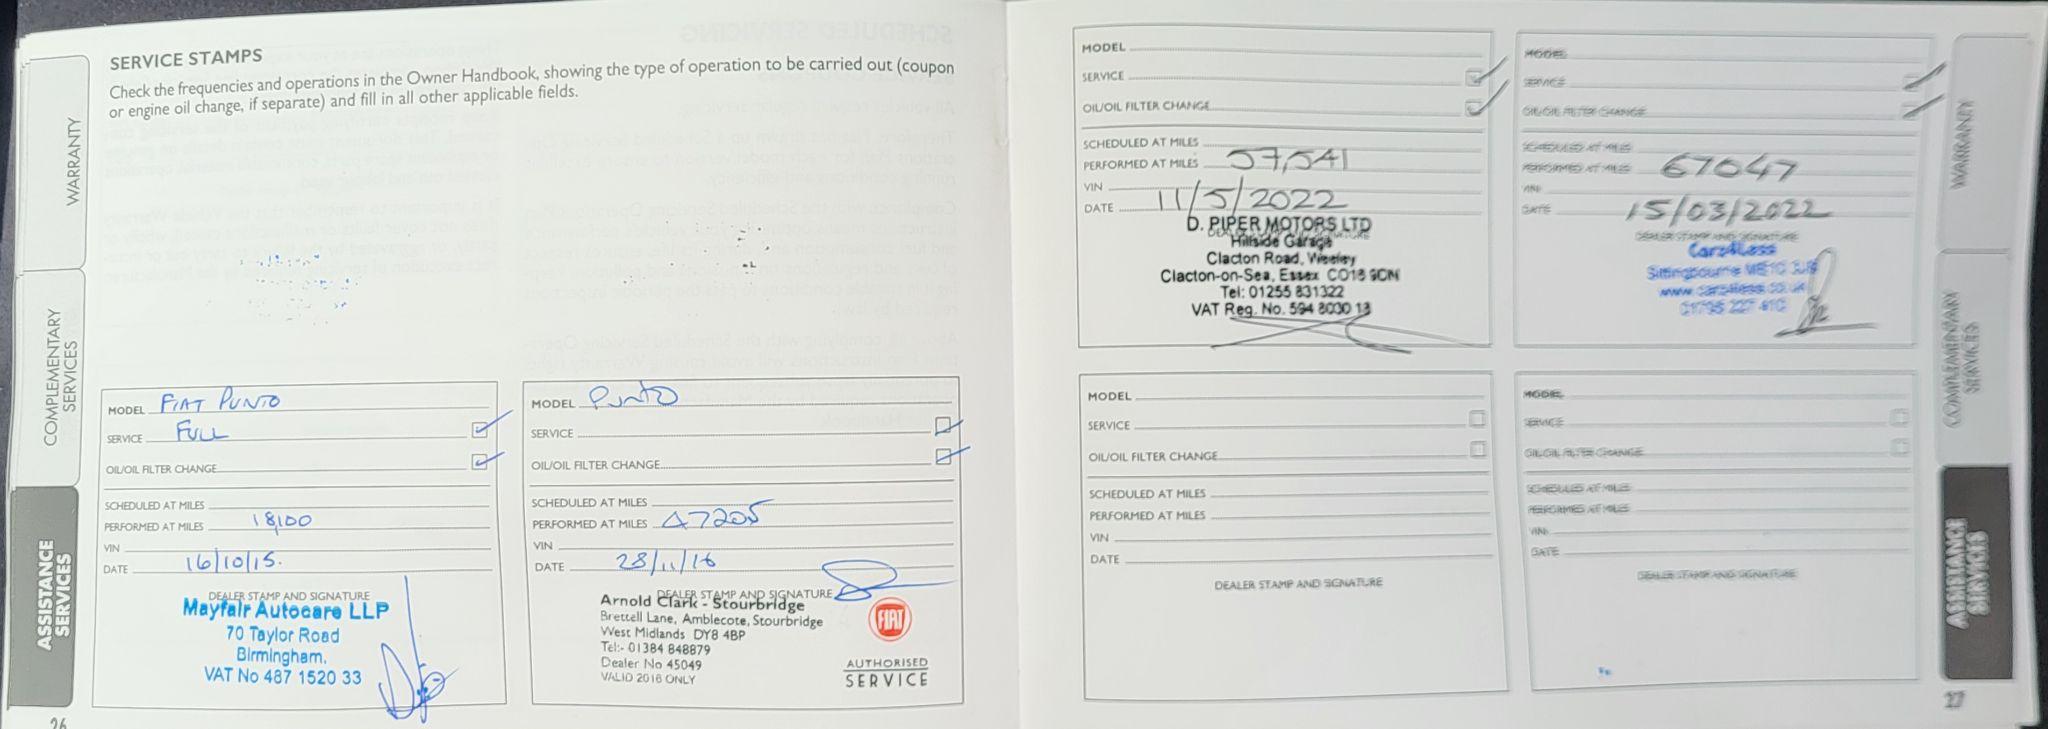 SERVICE STAMPS
Check the frequencies and operations in the Owner Handbook, showing the type of operation to be carried out (coupon
or engine oil change, if separate) and fill in all other applicable fields.
WARRANTY
COMPLEMENTARY
SERVICES
ASSISTANCE
SERVICES
MODEL FIAT PUNTO
SERVICE FULL
OIL/OIL FILTER CHANGE
SCHEDULED AT MILES
PERFORMED AT MILES 18,100
VIN
DATE 16/10/15.
DEALER STAMP AND SIGNATURE
Mayfair Autocare LLP
70 Taylor Road
Birmingham.
VAT No 487 1520 33
MODEL PUNTO
SERVICE
OIL/OIL FILTER CHANGE
SCHEDULED AT MILES
PERFORMED AT MILES 47205
VIN
DATE 28/11/16
DEALER STAMP AND SIGNATURE
Arnold Clark - Stourbridge
Brettell Lane, Amblecote, Stourbridge
West Midlands DY8 4BP
Tel:- 01384 848879
Dealer No 45049
VALID 2016 ONLY
FIAT
AUTHORISED
SERVICE
26
MODEL
SERVICE
OIL/OIL FILTER CHANGE
SCHEDULED AT MILES
PERFORMED AT MILES 57,541
VIN
DATE 11/5/2022
DEALER STAMP AND SIGNATURE
D. PIPER MOTORS LTD
Hillside Garage
Clacton Road, Weeley
Clacton-on-Sea, Essex CO16 9DN
Tel: 01255 831322
VAT Reg. No. 594 8030 13
MODEL
SERVICE
OIL/OIL FILTER CHANGE
SCHEDULED AT MILES
PERFORMED AT MILES 67047
VIN
DATE 15/03/2022
DEALER STAMP AND SIGNATURE
Cars4Less
Sittingbourne ME10
www.cars4less.co.uk
01795 227
MODEL
SERVICE
OIL/OIL FILTER CHANGE
SCHEDULED AT MILES
PERFORMED AT MILES
VIN
DATE
DEALER STAMP AND SIGNATURE
MODEL
SERVICE
OIL/OIL FILTER CHANGE
SCHEDULED AT MILES
PERFORMED AT MILES
VIN
DATE
DEALER STAMP AND SIGNATURE
WARRANTY
COMPLEMENTARY
SERVICES
ASSISTANCE
SERVICES
27